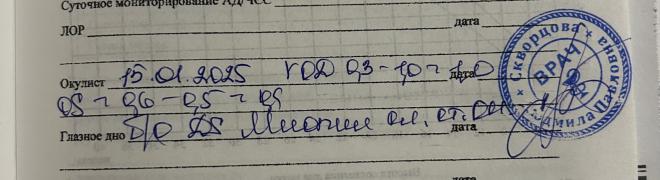 Суточное мониторирование АД/ЧСС
ЛОР дата
Окулист 15.01.2025 VOD 0,3 - 1,0 = 1,0 дата
OS = 0,6 - 0,5 = 0,9
Глазное дно б/о DS Миопии сл. ст. OU дата
Скворцова Людмила Павловна ВРАЧ
дата